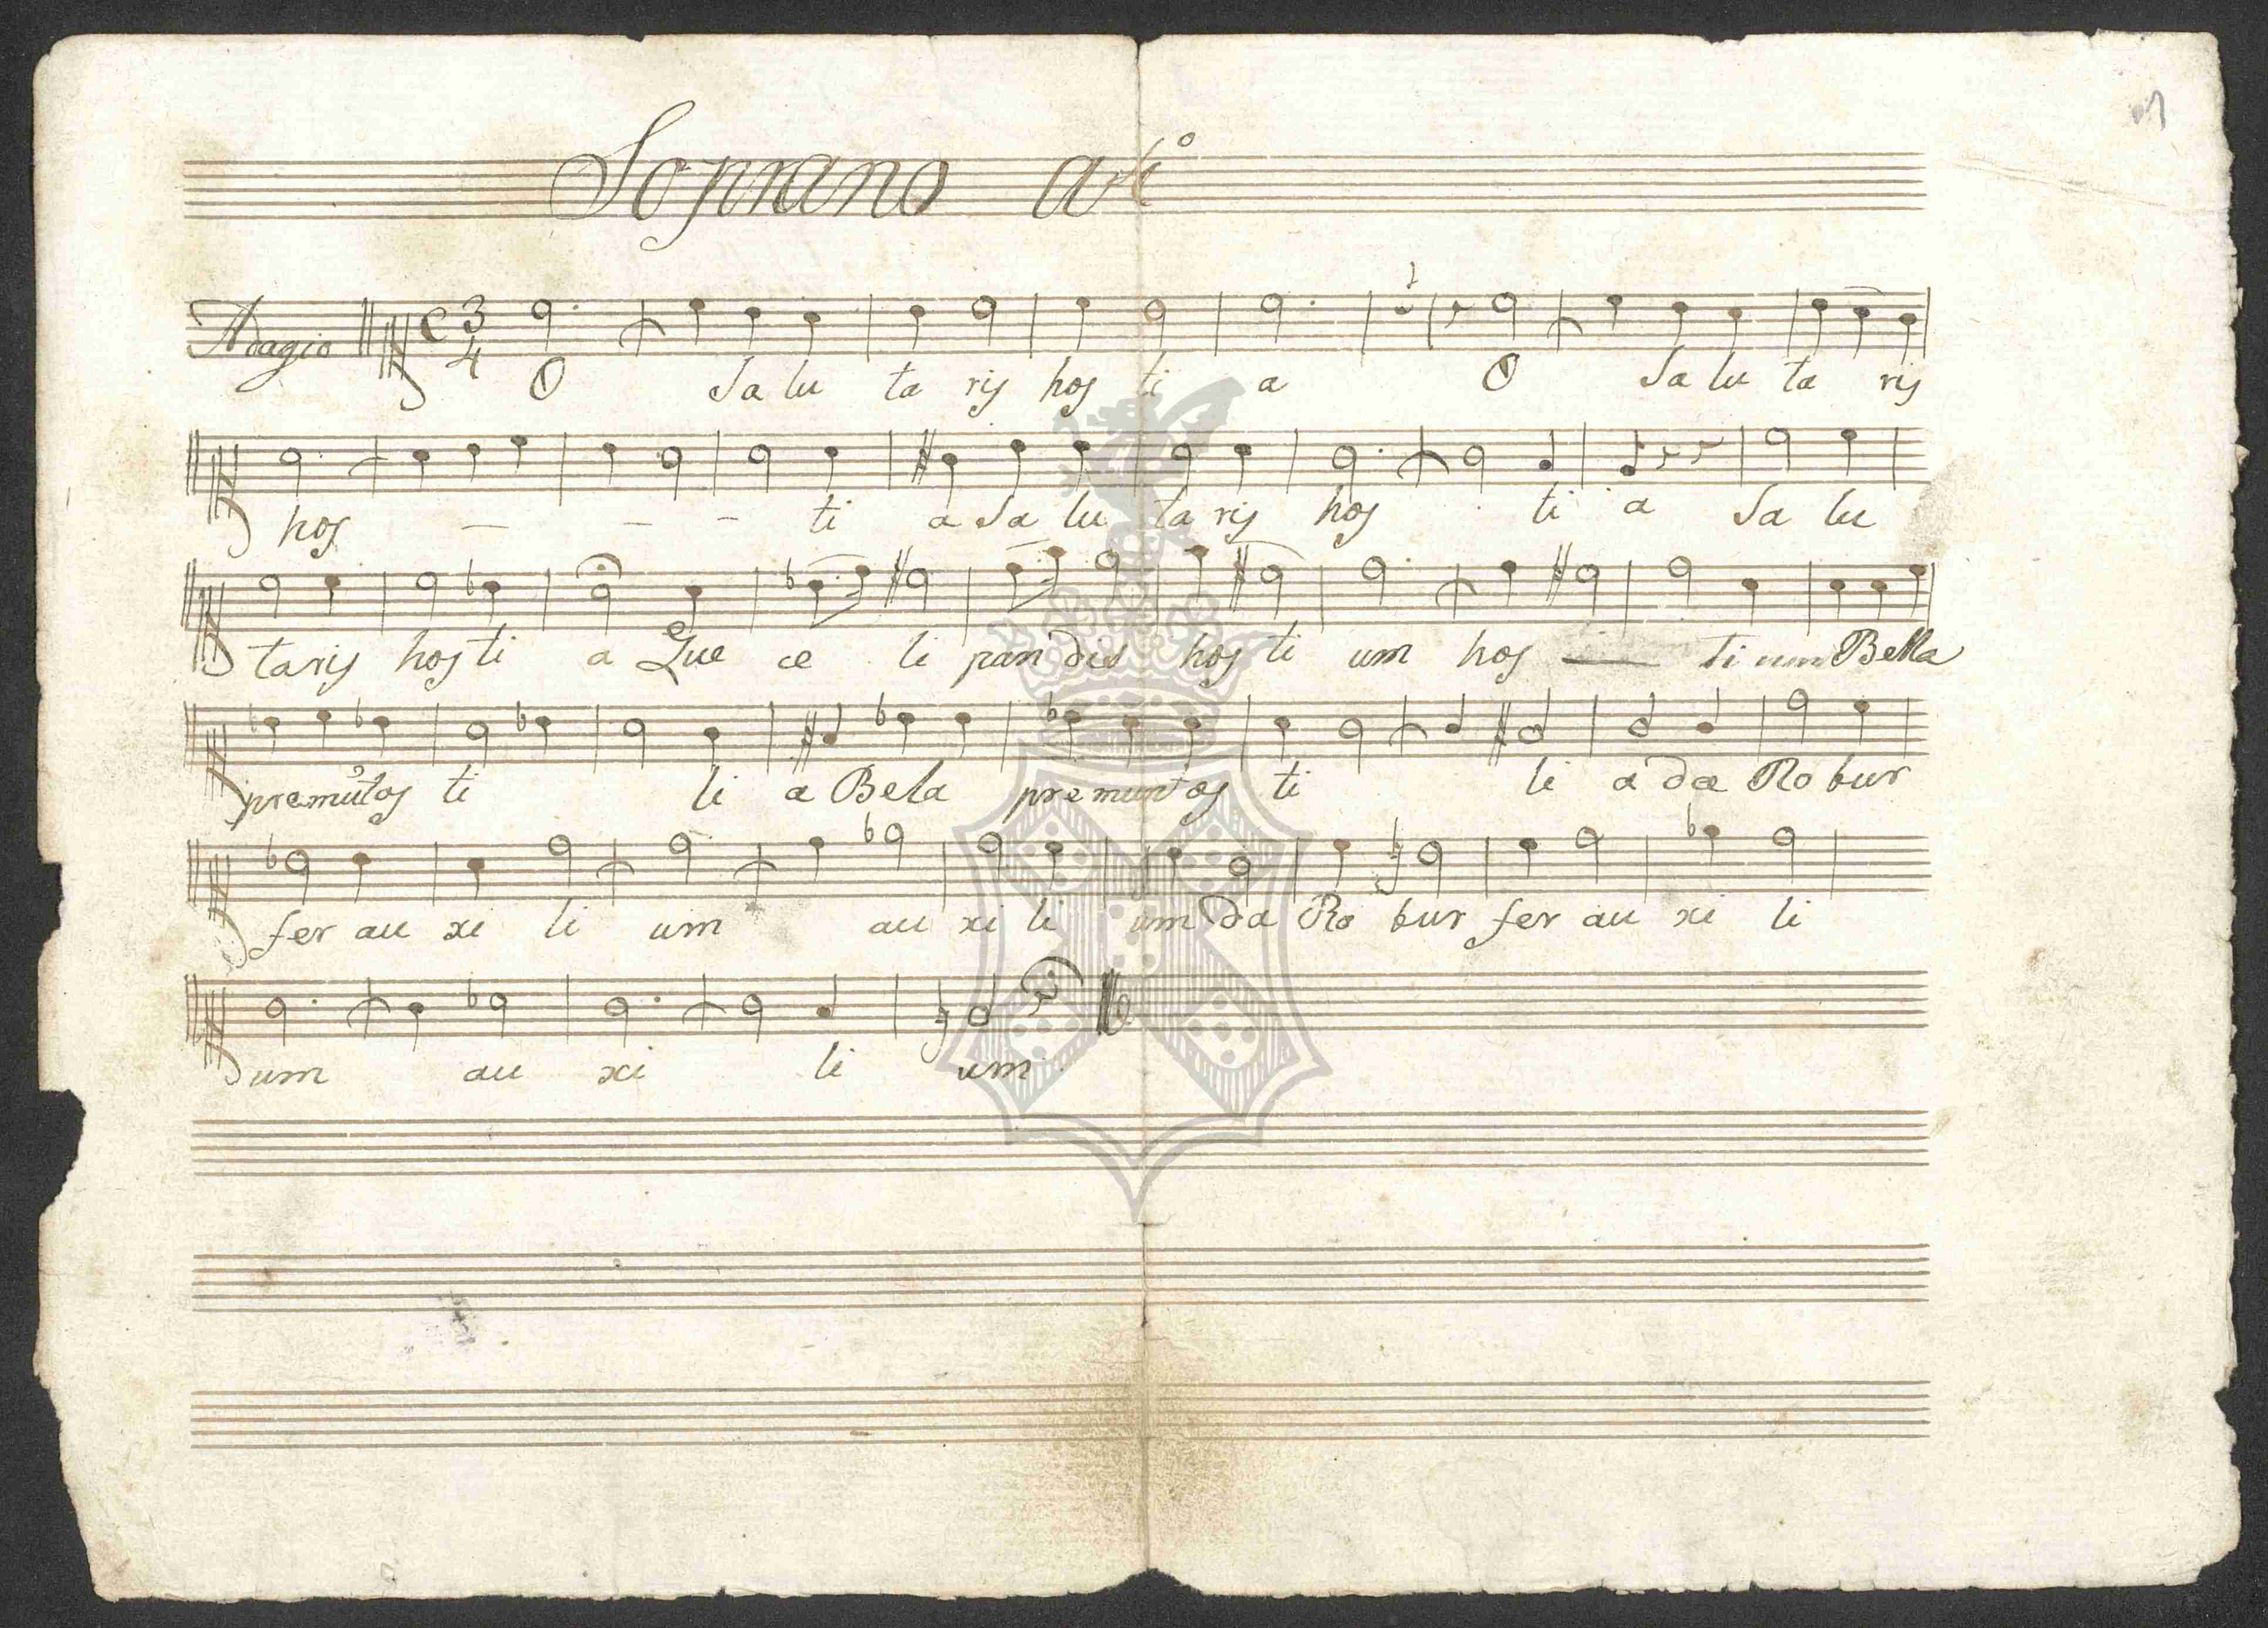 Soprano a 4º
Adagio 3 4
O Sa lu ta ris hos ti a O Sa lu ta ris
hos - - - ti a Sa lu ta ris hos ti a Sa lu
ta ris hos ti a Que ce li pan dis hos ti um hos — ti um Bella
premũtos ti li a Bela pre munt os ti li a da Ro bur
fer au xi li um au xi li um da Ro bur fer au xi li
um au xi li um